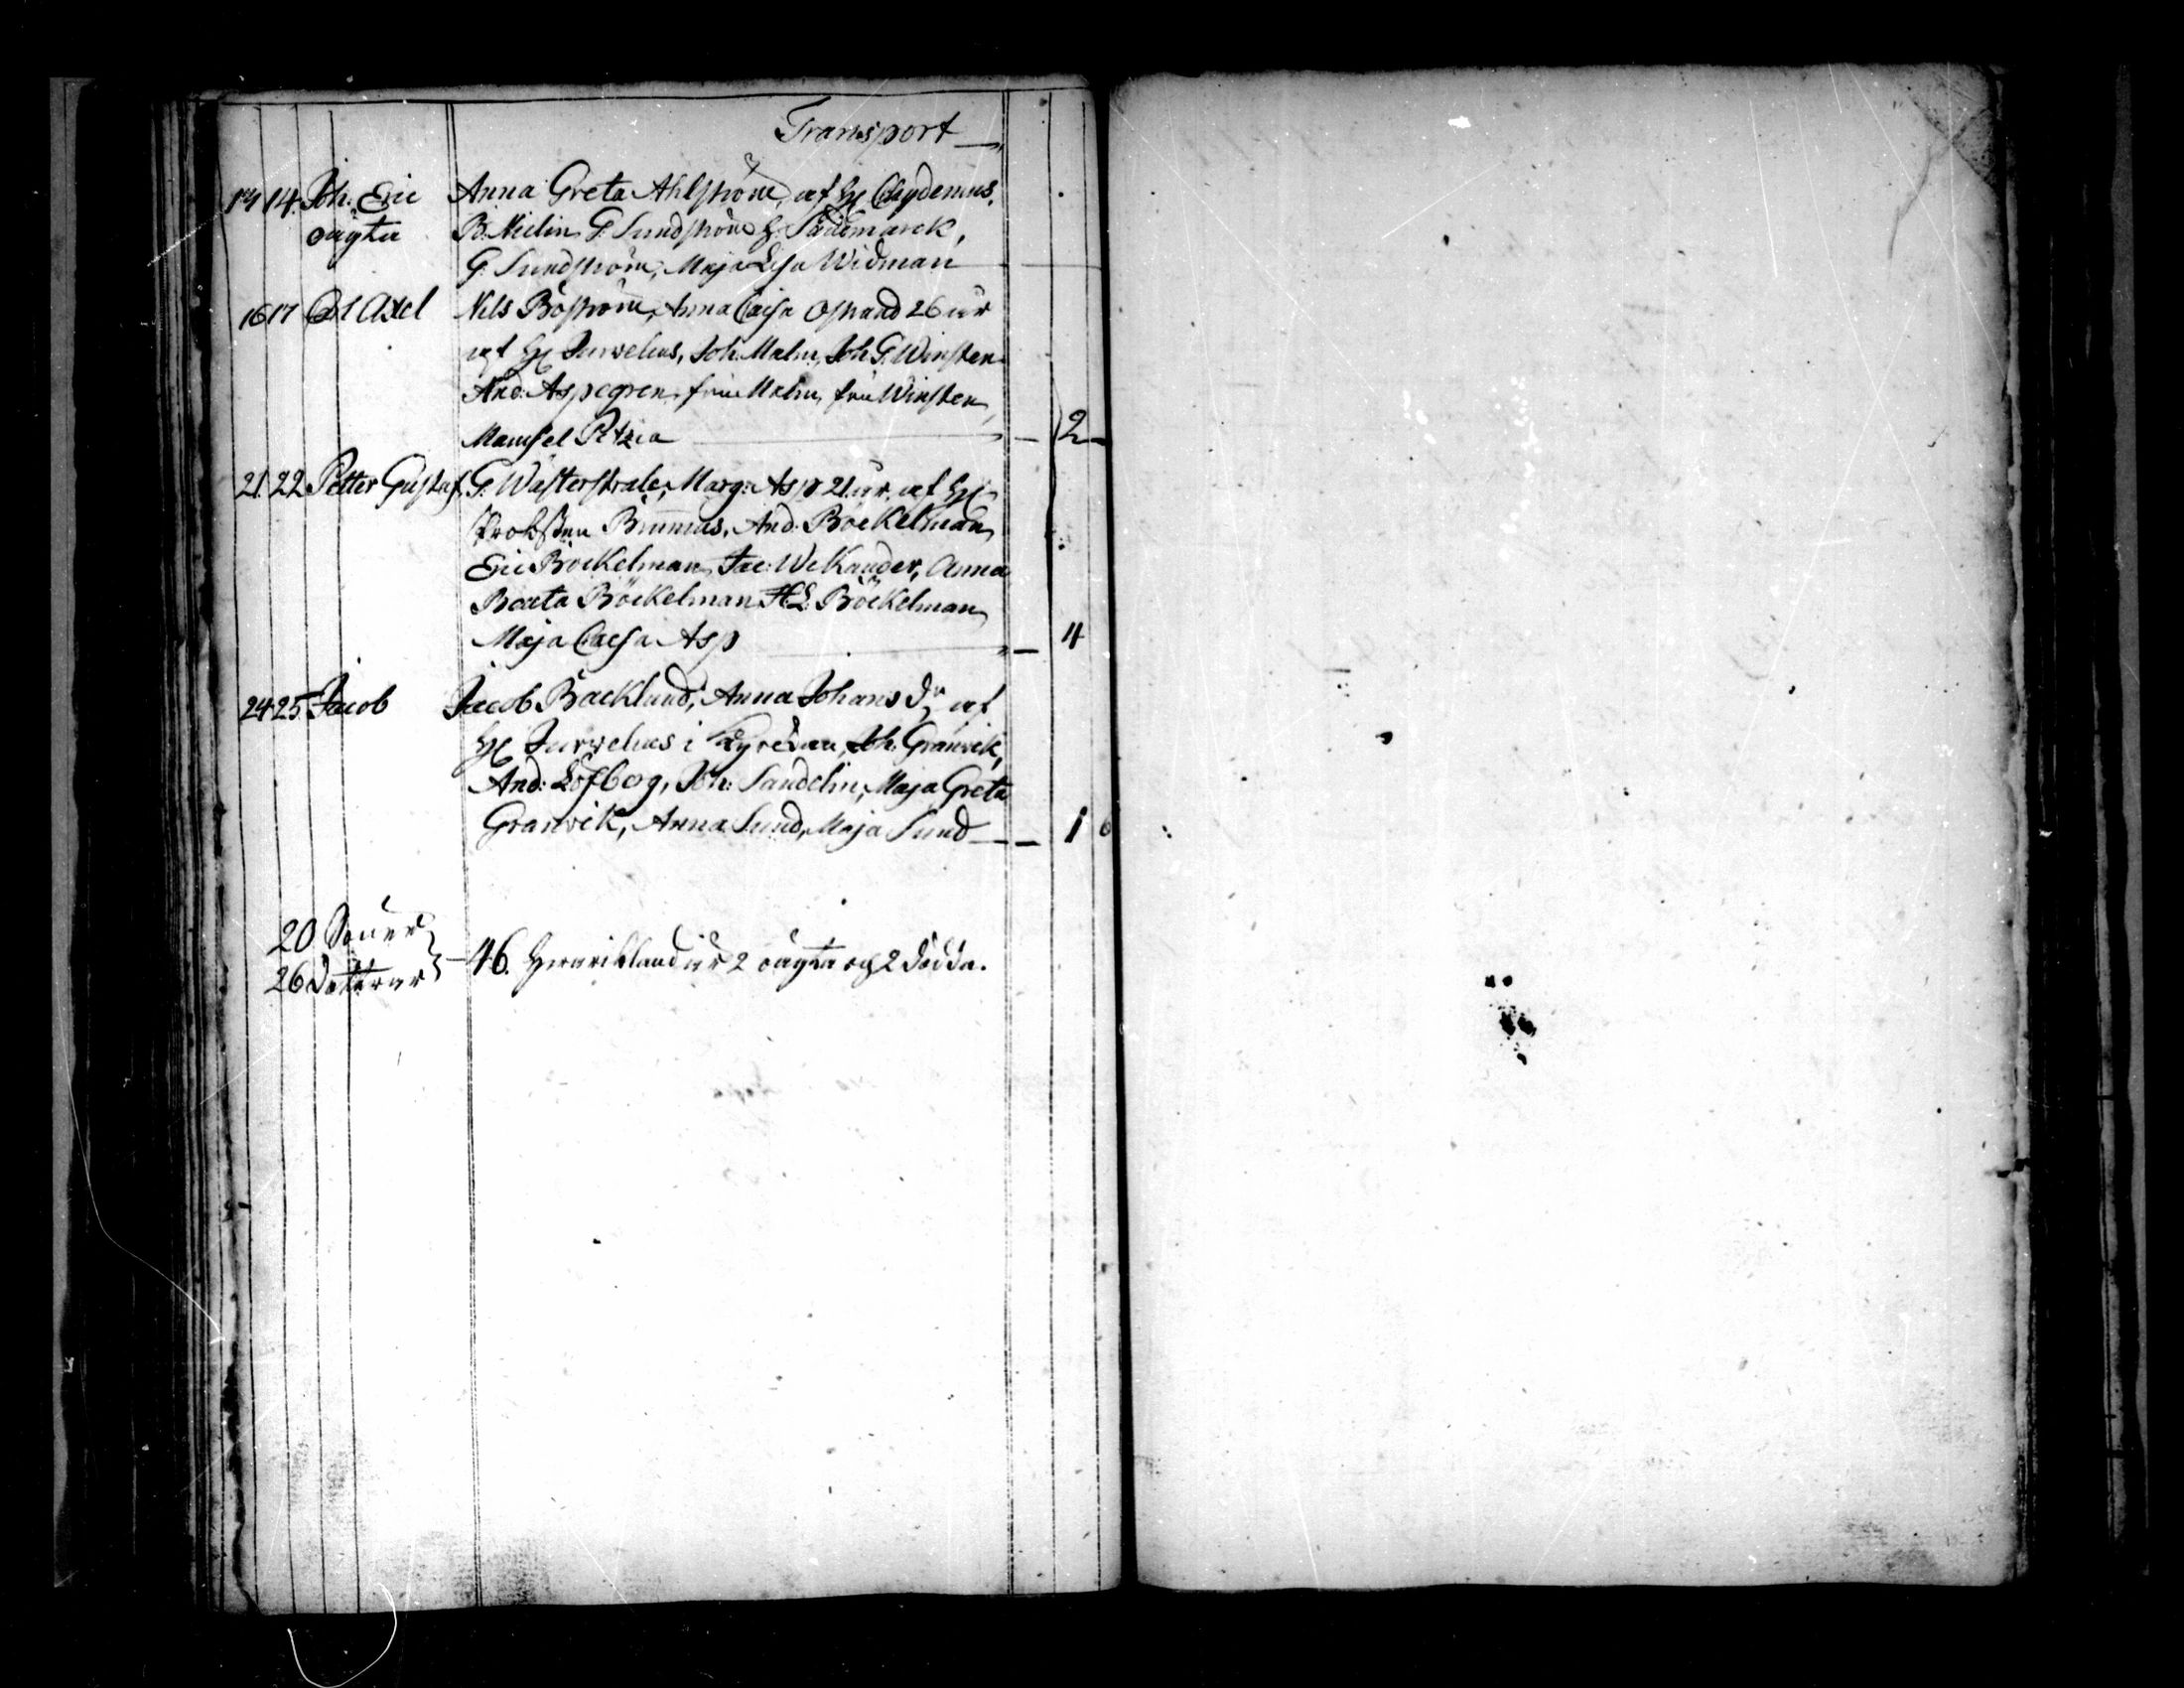 Transport
14 14. Joh. Eric Anna Greta Ahlström, af H: Chydenius,
oägta B. Melin G. Sundström H: Södermarck,
G. Sundström, Maja Lisa Widman
16 17 Axel Nils Boström, Anna Caisa Ostrand 26 år
af H: Jurvelius, Joh. Malm, Joh G. Winsten
And: Aspegren fru Malm, fru Winsten,
Mamsel Petzia — 2 —
21. 22 Petter Gustaf, G. Wästerstrale, Marg: Asp 21 år. af H:
Probsten And: Böckelman,
Eric Böckelman, Jac: Wekander, Anna
Beata Böckelman H L: Böckelman,
Maja Caisa Asp — 4
24 25. Jacob Jacob Backlund, Anna Johans dr af
H: Jurvelius i Kyrckan, Joh: Granvik,
And: Löfberg, Joh: Sandelin, Maja Greta
Granvik, Anna Sund, Maja Sund — 1 6
20 Söner
26 Döttrar } – 46. Hvaribland är 2 oägta och 2 dödda.